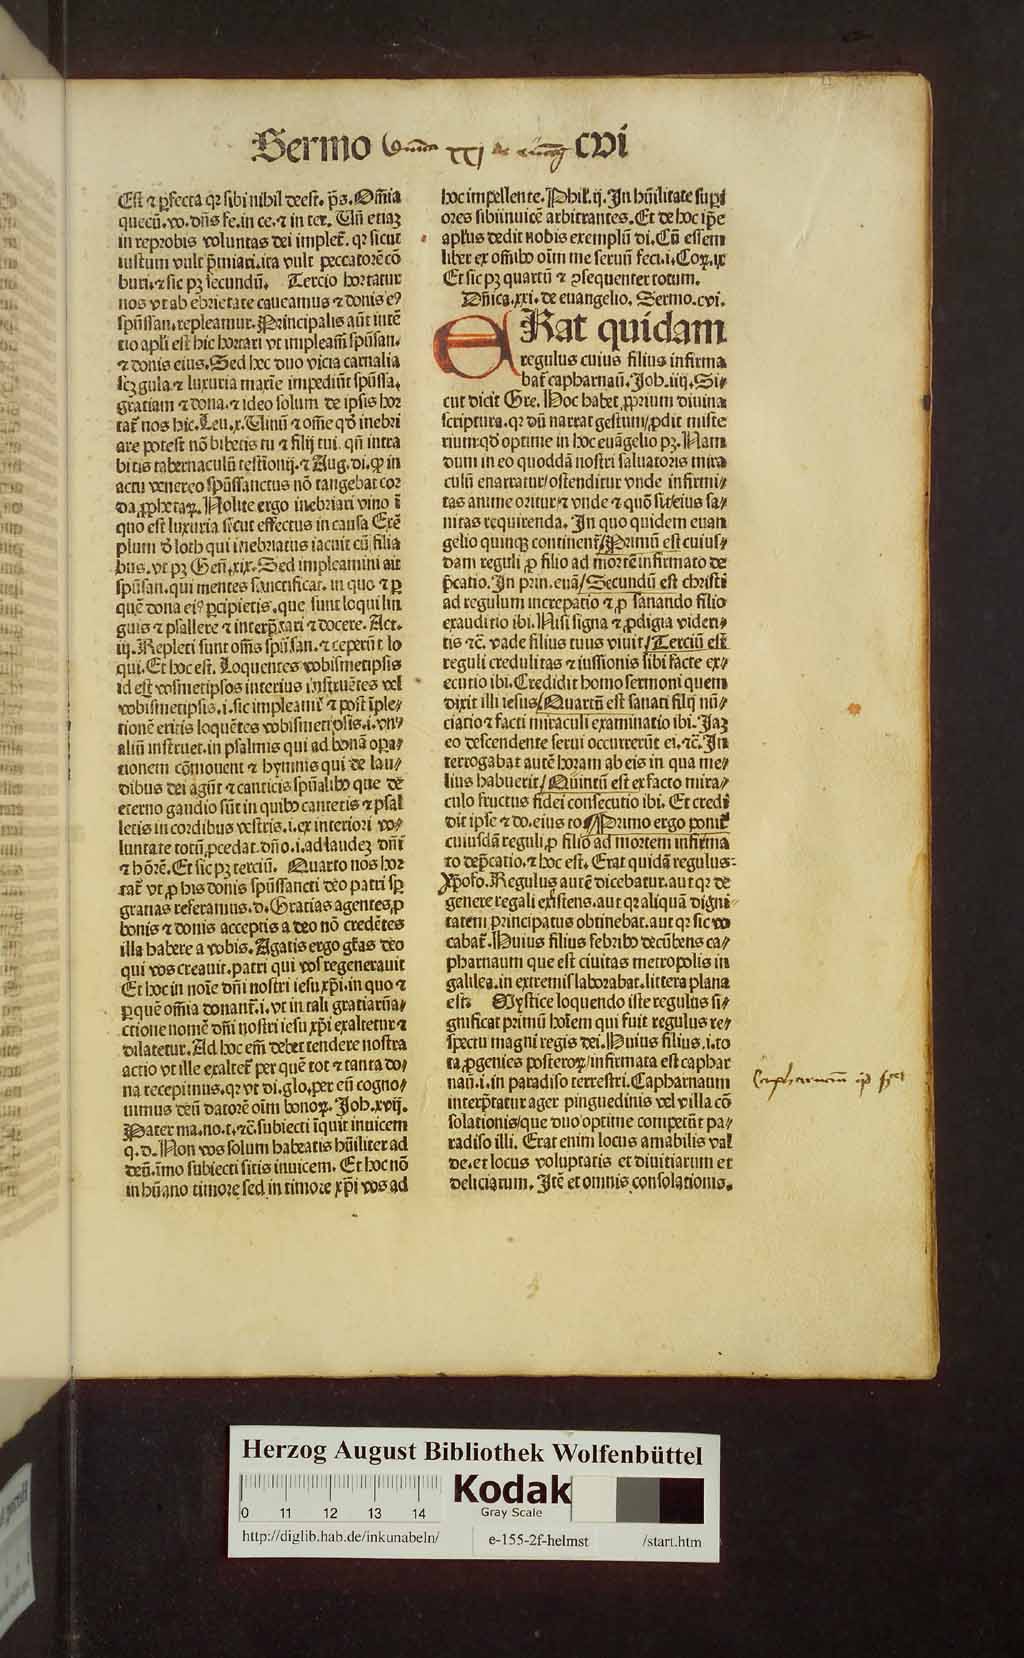 Sermo XXI de CVI
Est ⁊ ꝑfecta qꝛ sibi nihil deest. p̄s. Om̄ia
quecū. vo. dn̄s fe. in ce. ⁊ in ter. Un̄ etiaꝫ
in reprobis voluntas dei implet̄. qꝛ sicut
iustum vult p̄miari. ita vult peccatorē cō
buri. ⁊ sic pꝫ secundū. Tercio hortatur
nos vt ab ebrietate caueamus ⁊ donis eꝰ
spūssan. repleamur. Principalis aūt intē
tio apl̄i est hic hortari vt impleam̄ spūsan.
⁊ donis eius. Sed hec duo vicia carnalia
scꝫ gula ⁊ luxuria maxīe impediūt spūssā.
gratiam ⁊ dona. ⁊ ideo solum de ipsis hor
tat̄ nos hic. Leu. x. Uinū ⁊ om̄e qd̓ inebri
are potest nō bibetis tu ⁊ filij tui. qn̄ intra
bitis tabernaculū testīonij. ⁊ Aug. di. ꝙ in
actu venereo spūssanctus nō tangebat cor
da ꝓphetaꝝ. Nolite ergo inebriari vino ī
quo est luxuria sicut effectus in causa Exē
plum d̓ loth qui inebriatus iacuit cū filia
bus. vt pꝫ Gen̄. xix. Sed impleamini ait
spūsan. qui mentes sanctificat. in quo ⁊ ꝑ
quē dona eiꝰ ꝑcipietis. que sunt loqui lin
guis ⁊ psallere ⁊ interp̄tari ⁊ docere. Act.
ij. Repleti sunt om̄s spūsan. ⁊ ceperūt lo
qui. Et hoc est. Loquentes vobismetipsis
id est vosmetipsos interius instruētes vel
vobismetipsis. i. sic impleamī ⁊ post īple⸗
tionē eritis loquētes vobismetipsis. i. vnꝰ
aliū instruet. in psalmis qui ad bonā oꝑa⸗
tionem cōmouent ⁊ hymnis qui de lau⸗
dibus dei agūt ⁊ canticis spūalibꝰ que de
eterno gaudio sūt in quibꝰ cantetis ⁊ psal
letis in cordibus vestris. i. ex interiori vo⸗
luntate totū ꝓcedat. dn̄o. i. ad laudeꝫ dn̄i
⁊ hōrē. Et sic pꝫ terciū. Quarto nos hor
tat̄ vt ꝓ his donis spūssancti deo patri sꝑ
gratias referamus. d. Gratias agentes ꝓ
bonis ⁊ donis acceptis a deo nō credētes
illa habere a vobis. Agatis ergo gr̄as deo
qui vos creauit. patri qui vos regenerauit
Et hoc in noīe dn̄i nostri iesu xp̄i. in quo ⁊
ꝑ quē om̄ia donant̄. i. vt in tali gratiarūa⸗
ctione nomē dn̄i nostri iesu xp̄i exaltetur ⁊
dilatetur. Ad hoc em̄ debet tendere nostra
actio vt ille exaltet̄ per quē tot ⁊ tanta do⸗
na recepimus. qꝛ vt di. glo. per eū cogno⸗
uimus deū datorē oīm bonoꝝ. Joh. xvij.
Pater ma. no. t. ⁊c̄. subiecti īquit inuicem
q. d. Non vos solum habeatis hūiliter ad
deū. īmo subiecti sitis inuicem. Et hoc nō
in hūano timore sed in timore xp̄i vos ad
hoc impellente. Phil. ij. In hūilitate suꝑi
ores sibiinuicē arbitrantes. Et de hoc ip̄e
apl̄us dedit nobis exemplū di. Cū essem
liber ex om̄ibꝰ oīm me seruū feci. i. Coꝝ. ix
Et sic pꝫ quartū ⁊ ꝯsequenter totum.
Dn̄ica. xxi. de euangelio. Sermo. cvi.
ERat quidam
regulus cuius filius infirma
bat̄ capharnaū. Joh. iiij. Si⸗
cut dicit Gre. Hoc habet ꝓprium diuina
scriptura. qꝛ dū narrat gestum/ ꝓdit miste
rium. qd̓ optime in hoc euāgelio pꝫ. Nam
dum in eo quoddā nostri saluatoris mira
culū enarratur/ ostenditur vnde infirmi⸗
tas anime oritur/ ⁊ vnde ⁊ quō sit eius sa⸗
nitas requirenda. In quo quidem euan
gelio quinqꝫ continent̄/ Primū est cuius⸗
dam reguli ꝓ filio ad mortē infirmato de
p̄catio. In prin. euā/ Secundū est christi
ad regulum increpatio ⁊ ꝓ sanando filio
exauditio ibi. Nisi signa ⁊ ꝓdigia videri⸗
tis ⁊c̄. vade filius tuus viuit/ Terciū est
reguli credulitas ⁊ iussionis sibi facte ex⸗
ecutio ibi. Credidit homo sermoni quem
dixit illi iesus/ Quartū est sanati filij nū⸗
ciatio ⁊ facti miraculi examinatio ibi. Jaꝫ
eo descendente serui occurrerūt ei. ⁊c̄. In
terrogabat autē horam ab eis in qua me⸗
lius habuerit/ Quintū est ex facto mira⸗
culo fructus fidei consecutio ibi. Et credi
dit ipse ⁊ do. eius to/ Primo ergo ponit̄
cuiusdā reguli ꝓ filio ad mortem infirma
to dep̄catio. ⁊ hoc est. Erat quidā regulus
Xp̄ofo. Regulus autē dicebatur. aut qꝛ de
genere regali existens. aut qꝛ aliquā digni
tatem principatus obtinebat. aut qꝛ sic vo
cabat̄. Huius filius febribꝰ decūbens ca⸗
pharnaum que est ciuitas metropolis in
galilea. in extremis laborabat. littera plana
est. Mystice loquendo iste regulus si⸗
gnificat primū hoīem qui fuit regulus re⸗
spectu magni regis dei. Huius filius. i. to
ta ꝓgenies posteroꝝ/ infirmata est caphar
naū. i. in paradiso terrestri. Capharnaum
interp̄tatur ager pinguedinis vel villa cō
solationis/ que duo optime competūt pa⸗
radiso illi. Erat enim locus amabilis val
de. et locus voluptatis et diuitiarum et
deliciarum. Itē et omnis consolationis.
Capharnaum
Herzog August Bibliothek Wolfenbüttel
0 11 12 13 14
Kodak
Gray Scale
http://diglib.hab.de/inkunabeln/ e-155-2f-helmst /start.htm